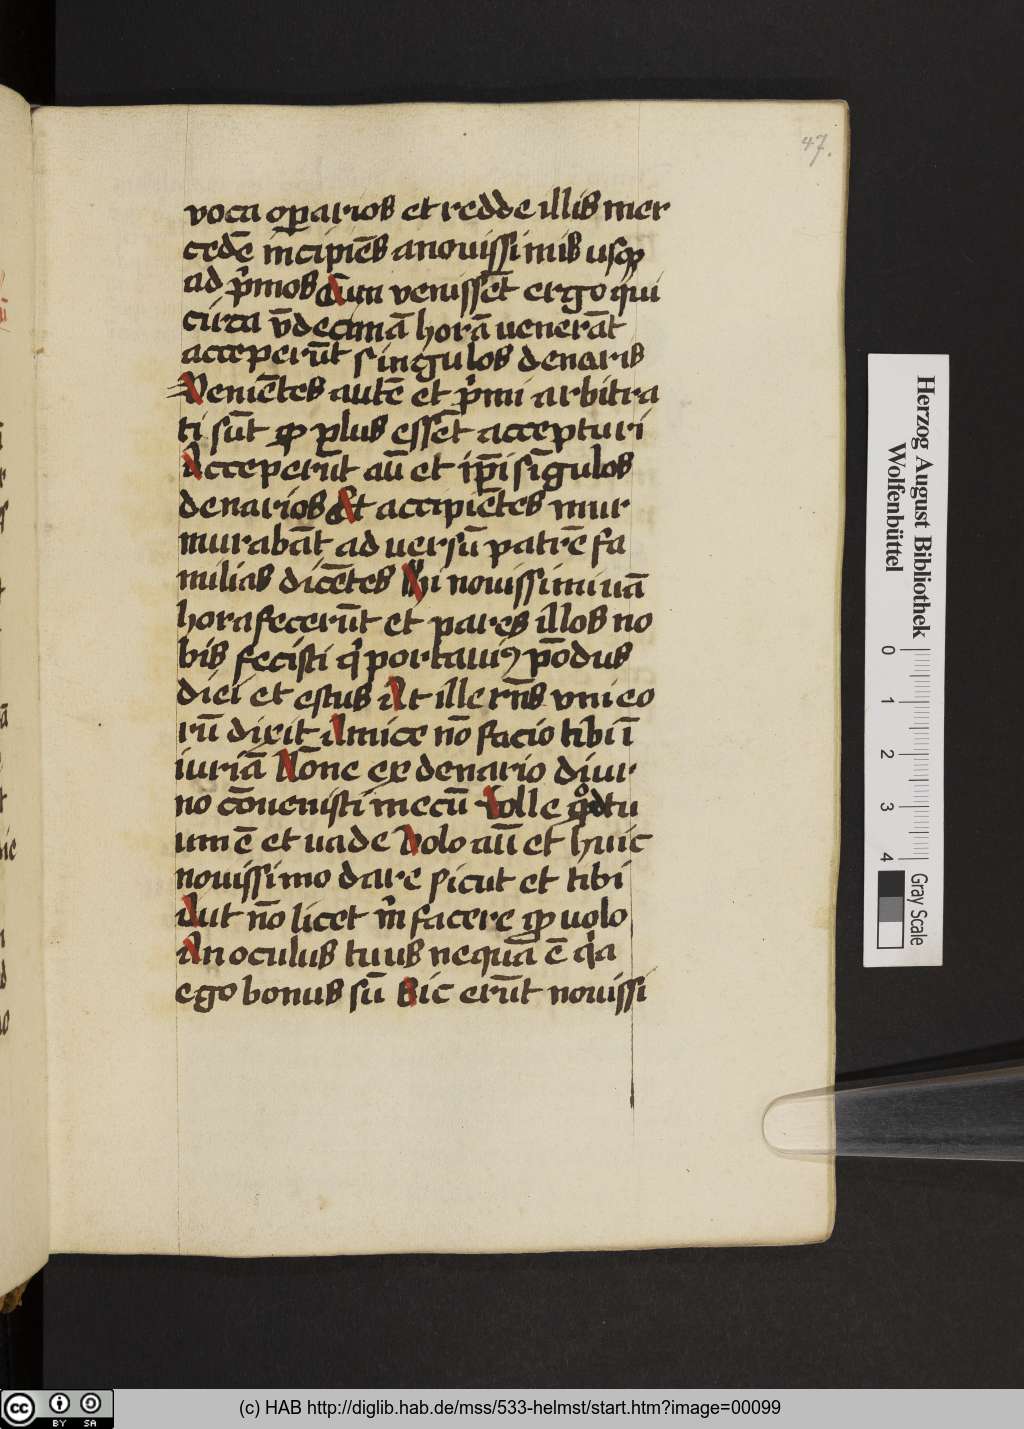 47.
voca oꝑarios et redde illis mer
cedē incipiēs a nouissimis usqꝫ
ad p̾mos Cum venissēt ergo qui
circa vndecimā horā uenerāt
acceperūt singulos denaris
Venientes autē et p̾mi arbitra
ti sūt qꝫ plus essēt accepturi
Acceperūt aū et ip̄i singulos
denarios Et accipiētes mur
murabāt aduersū patrē fa
milias dicētes Hii nouissimi unā
hora fecerūt et pares illos no
bis fecisti q̾ portauiꝰ pōdus
diei et estus At ille rn̄s vni eo
rū dixit Amice nō facio tibi ī
iuriā Nōne ex denario diur
no cōuenisti mecū Tolle qd̾ tu
um ē et uade Volo aū et huic
nouissimo dare sicut et tibi
Aut nō licet m̾ facere qꝫ uolo
An oculus tuus nequā ē q̾a
ego bonus sū Sic erūt nouissi
Herzog August Bibliothek
Wolfenbüttel
0 1 2 3 4
Gray Scale
cc BY SA
(c) HAB http://diglib.hab.de/mss/533-helmst/start.htm?image=00099